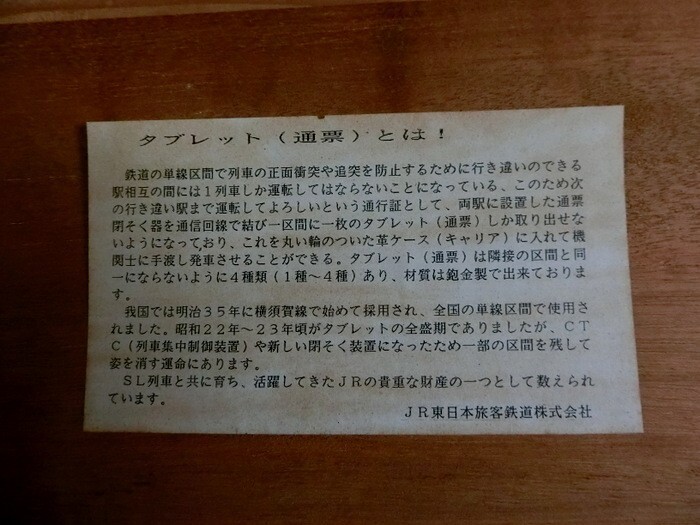 タブレット（通票）とは！
鉄道の単線区間で列車の正面衝突や追突を防止するために行き違いのできる
駅相互の間には１列車しか運転してはならないことになっている、このため次
の行き違い駅まで運転してよろしいという通行証として、両駅に設置した通票
閉そく器を通信回線で結び一区間に一枚のタブレット（通票）しか取り出せな
いようになっており、これを丸い輪のついた革ケース（キャリア）に入れて機
関士に手渡し発車させることができる。タブレット（通票）は隣接の区間と同
一にならないように４種類（１種〜４種）あり、材質は砲金製で出来ておりま
す。
我国では明治３５年に横須賀線で始めて採用され、全国の単線区間で使用さ
れました。昭和２２年〜２３年頃がタブレットの全盛期でありましたが、ＣＴ
Ｃ（列車集中制御装置）や新しい閉そく装置になったため一部の区間を残して
姿を消す運命にあります。
ＳＬ列車と共に育ち、活躍してきたＪＲの貴重な財産の一つとして数えられ
ています。
ＪＲ東日本旅客鉄道株式会社